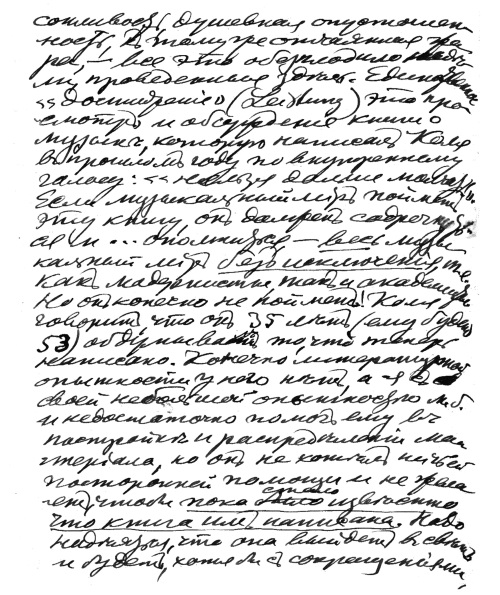 сонливость, душевная опустошен-
ность, к тому же отчаянная жа-
ра, — все это обезглодило
ли, проведенныя здѣсь. Единственное
"достиженіе" (Leistung) это про-
смотръ и обсужденіе книги о
музыкѣ, которую написалъ Коля
въ прошломъ году по внутреннему
голосу: "нельзя далѣе молчать".
Если музыкальный міръ пойметъ
эту книгу, онъ замретъ, содрогнув-
ся и ... опомнится — весь музы-
кальный міръ безъ исключенія,
какъ модернисты, такъ и академики.
Но онъ конечно не пойметъ! Коля
говоритъ, что онъ 35 лѣтъ (ему будетъ
53) обдумывалъ то, что теперь
написано. Конечно литературной
опытности у него нѣтъ, а я
своей небольшой опытностью м. б.
и недостаточно помогъ ему въ
постройкѣ и распредѣленіи ма-
теріала, но онъ не хочетъ ничьей
посторонней помощи и не жела-
етъ, чтобы пока стало извѣстно
что книга имъ написана. Надо
надѣяться, что она выйдетъ въ свѣтъ
и будетъ, хотя бы съ сокращеніями,